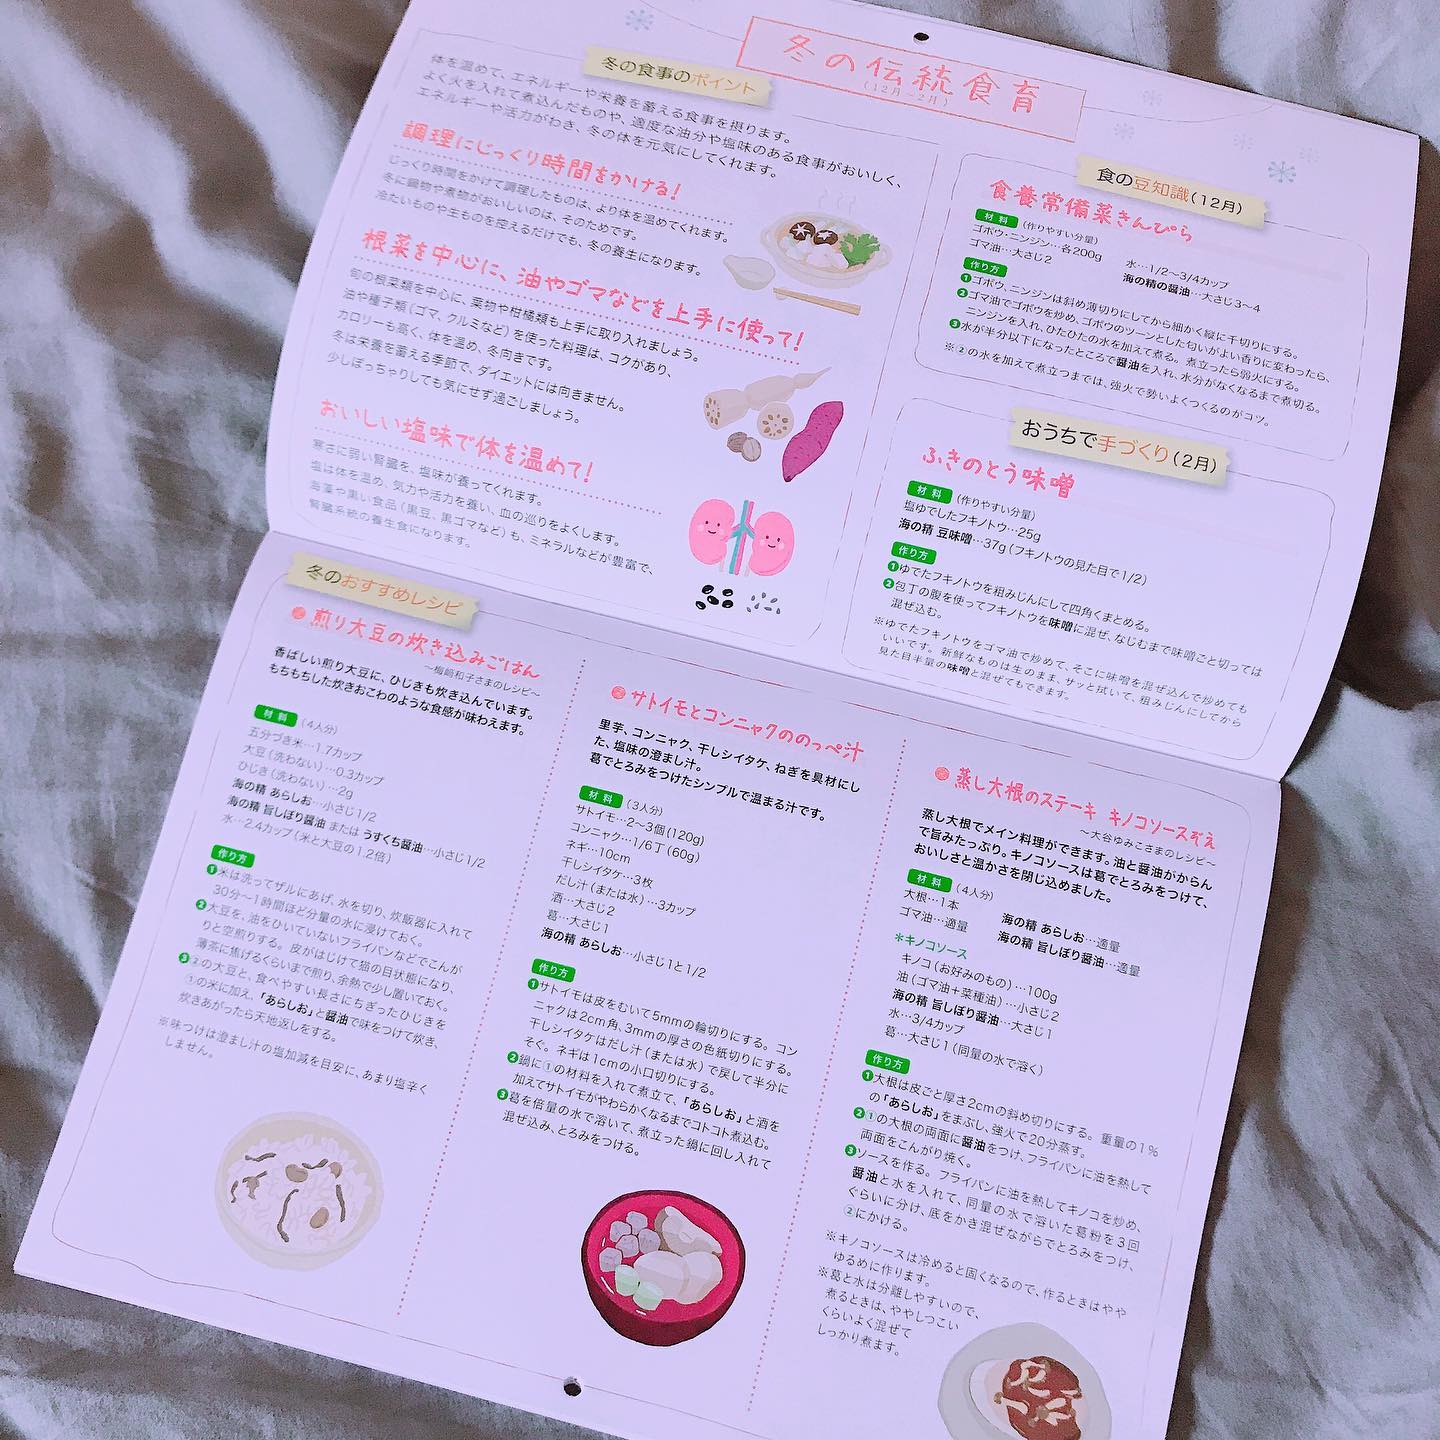 冬の伝統食育
(12月〜2月)
冬の食事のポイント
体を温めて、エネルギーや栄養を蓄える食事を摂ります。
よく火を入れて煮込んだものや、適度な油分や塩味のある食事がおいしく、
エネルギーや活力がわき、冬の体を元気にしてくれます。
調理にじっくり時間をかける!
じっくり時間をかけて調理したものは、より体を温めてくれます。
冬に鍋物や煮物がおいしいのは、そのためです。
冷たいものや生ものを控えるだけでも、冬の養生になります。
根菜を中心に、油やゴマなどを上手に使って!
旬の根菜類を中心に、葉物や柑橘類も上手に取り入れましょう。
油や種子類(ゴマ、クルミなど)を使った料理は、コクがあり、
カロリーも高く、体を温め、冬向きです。
冬は栄養を蓄える季節で、ダイエットには向きません。
少しぽっちゃりしても気にせず過ごしましょう。
おいしい塩味で体を温めて!
寒さに弱い腎臓を、塩味が養ってくれます。
塩は体を温め、気力や活力を養い、血の巡りをよくします。
海藻や黒い食品(黒豆、黒ゴマなど)も、ミネラルなどが豊富で、
腎臓系統の養生食になります。
食の豆知識(12月)
食養常備菜きんぴら
材料 (作りやすい分量)
ゴボウ・ニンジン…各200g
ゴマ油…大さじ2
水…1/2〜3/4カップ
海の精の醤油…大さじ3〜4
作り方
❶ゴボウ、ニンジンは斜め薄切りにしてから細かく縦に千切りにする。
❷ゴマ油でゴボウを炒め、ゴボウのツーンとした匂いがよい香りに変わったら、
ニンジンを入れ、ひたひたの水を加えて煮る。煮立ったら弱火にする。
❸水が半分以下になったところで醤油を入れ、水分がなくなるまで煮切る。
※②の水を加えて煮立つまでは、強火で勢いよくつくるのがコツ。
おうちで手づくり(2月)
ふきのとう味噌
材料 (作りやすい分量)
塩ゆでしたフキノトウ…25g
海の精 豆味噌…37g(フキノトウの見た目で1/2)
作り方
❶ゆでたフキノトウを粗みじんにして四角くまとめる。
❷包丁の腹を使ってフキノトウを味噌に混ぜ、なじむまで味噌ごと切っては
混ぜ込む。
※ゆでたフキノトウをゴマ油で炒めて、そこに味噌を混ぜ込んで炒めても
いいです。新鮮なものは生のまま、サッと拭いて、粗みじんにしてから
見た目半量の味噌と混ぜてもできます。
冬のおすすめレシピ
煎り大豆の炊き込みごはん
〜梅﨑和子さまのレシピ〜
香ばしい煎り大豆に、ひじきも炊き込んでいます。
もちもちした炊きおこわのような食感が味わえます。
材料 (4人分)
五分づき米…1.7カップ
大豆(洗わない)…0.3カップ
ひじき(洗わない)…2g
海の精 あらしお…小さじ1/2
海の精 旨しぼり醤油 または うすくち醤油…小さじ1/2
水…2.4カップ(米と大豆の1.2倍)
作り方
❶米は洗ってザルにあげ、水を切り、炊飯器に入れて
30分〜1時間ほど分量の水に浸けておく。
❷大豆を、油をひいていないフライパンなどでこんが
りと空煎りする。皮がはじけて猫の目状態になり、
薄茶に焦げるくらいまで煎り、余熱で少し置いておく。
❸②の大豆と、食べやすい長さにちぎったひじきを
①の米に加え、「あらしお」と醤油で味をつけて炊き、
炊きあがったら天地返しをする。
※味つけは澄まし汁の塩加減を目安に、あまり塩辛く
しません。
サトイモとコンニャクののっぺ汁
里芋、コンニャク、干しシイタケ、ねぎを具材にし
た、塩味の澄まし汁。
葛でとろみをつけたシンプルで温まる汁です。
材料 (3人分)
サトイモ…2〜3個(120g)
コンニャク…1/6丁(60g)
ネギ…10cm
干しシイタケ…3枚
だし汁(または水)…3カップ
酒…大さじ2
葛…大さじ1
海の精 あらしお…小さじ1と1/2
作り方
❶サトイモは皮をむいて5mmの輪切りにする。コン
ニャクは2cm角、3mmの厚さの色紙切りにする。
干しシイタケはだし汁(または水)で戻して半分に
そぐ。ネギは1cmの小口切りにする。
❷鍋に①の材料を入れて煮立て、「あらしお」と酒を
加えてサトイモがやわらかくなるまでコトコト煮込む。
❸葛を倍量の水で溶いて、煮立った鍋に回し入れて
混ぜ込み、とろみをつける。
蒸し大根のステーキ キノコソースぞえ
〜大谷ゆみこさまのレシピ〜
蒸し大根でメイン料理ができます。油と醤油がからん
で旨みたっぷり。キノコソースは葛でとろみをつけて、
おいしさと温かさを閉じ込めました。
材料 (4人分)
大根…1本
ゴマ油…適量
海の精 あらしお…適量
海の精 旨しぼり醤油…適量
＊キノコソース
キノコ(お好みのもの)…100g
油(ゴマ油+菜種油)…小さじ2
海の精 旨しぼり醤油…大さじ1
水…3/4カップ
葛…大さじ1(同量の水で溶く)
作り方
❶大根は皮ごと厚さ2cmの斜め切りにする。重量の1%
の「あらしお」をまぶし、強火で20分蒸す。
❷①の大根の両面に醤油をつけ、フライパンに油を熱して
両面をこんがり焼く。
❸ソースを作る。フライパンに油を熱してキノコを炒め、
醤油と水を入れて、同量の水で溶いた葛粉を3回
ぐらいに分け、底をかき混ぜながらでとろみをつけ、
②にかける。
※キノコソースは冷めると固くなるので、作るときはやや
ゆるめに作ります。
※葛と水は分離しやすいので、
煮るときは、ややしつこい
くらいよく混ぜて
しっかり煮ます。